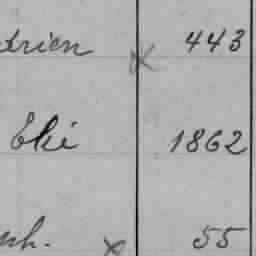 drien 443
Elié 1862
ph. 55